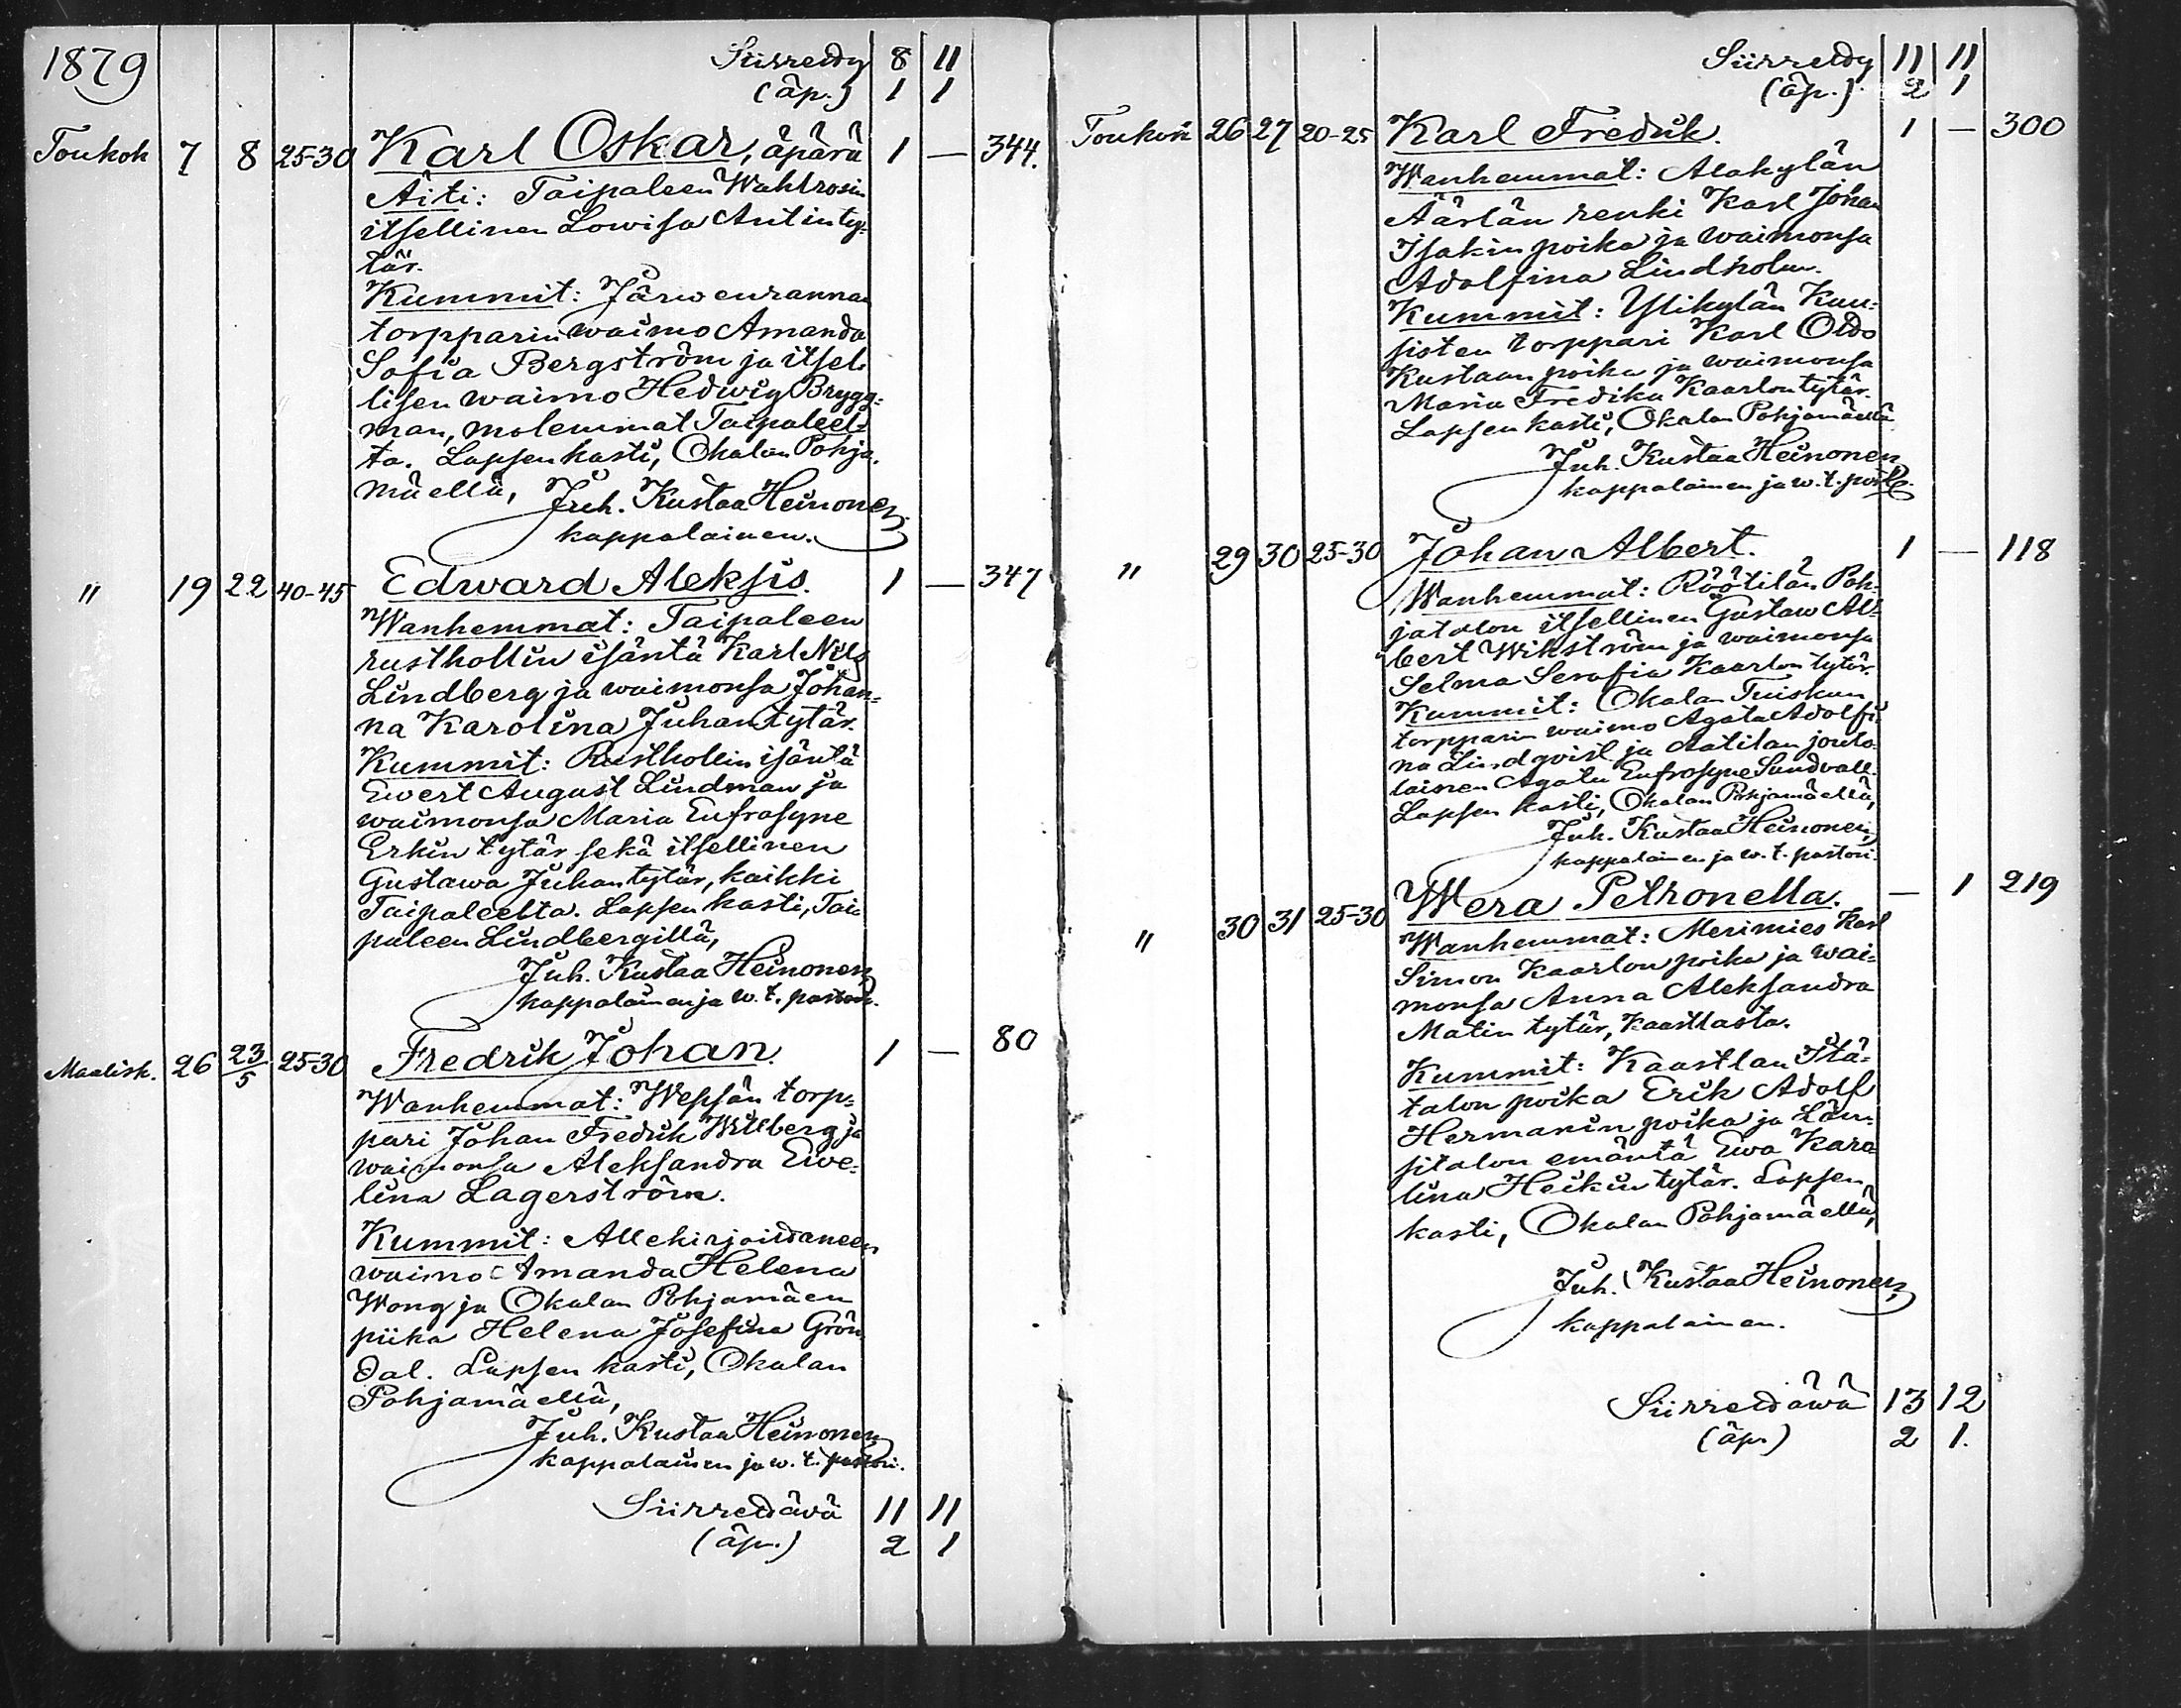 1879 Siirretty 8 11
(äp.) 1 1
Toukok 7 8 25-30 Karl Oskar, äpärä 1 — 344.
Äiti: Taipaleen Wahlrosin
itsellinen Lowisa Antinty-
tär.
Kummit: Järwenrannan
torpparin waimo Amanda
Sofia Bergström ja itsel-
lisen waimo Hedwig Brygg-
man, molemmat Taipaleel-
ta. Lapsen kasti, Okalan Pohja-
mäellä, Juh. Kustaa Heinonen
kappalainen.
" 19 22 40-45 Edward Aleksis. 1 — 347
Wanhemmat: Taipaleen
rusthollin isäntä Karl Nils
Lindberg ja waimonsa Johan-
na Karolina Juhantytär.
Kummit: Rusthollin isäntä
Ewert August Lindman ja
waimonsa Maria Eufrosyne
Erkin tytär sekä itsellinen
Gustawa Juhantytär, kaikki
Taipaleelta. Lapsen kasti, Tai-
paleen Lindbergillä,
Juh. Kustaa Heinonen
kappalainen ja w. t. pastori.
Maalisk. 26 23/5 25-30 Fredrik Johan. 1 — 80
Wanhemmat: Wepsän torp-
pari Johan Fredrik Willberg ja
waimonsa Aleksandra Ewe-
lina Lagerström.
Kummit: Allekirjoittaneen
waimo Amanda Helena
Wong ja Okalan Pohjamäen
piika Helena Josefina Grön-
dal. Lapsen kasti, Okalan
Pohjamäellä,
Juh. Kustaa Heinonen
kappalainen ja w. t. pastori.
Siirrettävä 11 11
(äp.) 2 1
Siirretty 11 11
(äp.) 2 1
Toukok 26 27 20-25 Karl Fredrik. 1 — 300
Wanhemmat: Alakylän
Äärlän renki Karl Johan
Isakin poika ja waimonsa
Adolfina Lindholm.
Kummit: Ylikylän Kuu-
sisten torppari Karl Otto
Kustaan poika ja waimonsa
Maria Fredika Kaarlontytär.
Lapsen kasti, Okalan Pohjamäellä
Juh. Kustaa Heinonen
kappalainen ja w. t. past.
" 29 30 25-30 Johan Albert. 1 — 118
Wanhemmat: Röötilän Poh-
jatalon itsellinen Gustaw Al-
bert Wikström ja waimonsa
Selma Serafia Kaarlon tytär.
Kummit: Okalan Tuiskun
torpparin waimo Agata Adolfi-
na Lindqvist ja Aatilan joulo-
lainen Agata Eufrosyne Sundvall.
Lapsen kasti, Okalan Pohjamäellä,
Juh. Kustaa Heinonen,
kappalainen ja w. t. pastori.
" 30 31 25-30 Wera Petronella. — 1 219
Wanhemmat: Merimies Karl
Simon Kaarlon poika ja wai-
monsa Anna Aleksandra
Matin tytär, Kaastlasta.
Kummit: Kaastlan Itä-
talon poika Erik Adolf
Hermanin poika ja Län-
sitalon emäntä Ewa Karo-
lina Heikin tytär. Lapsen
kasti, Okalan Pohjamäellä,
Juh. Kustaa Heinonen,
kappalainen.
Siirrettäwä 13 12
(äp.) 2 1.